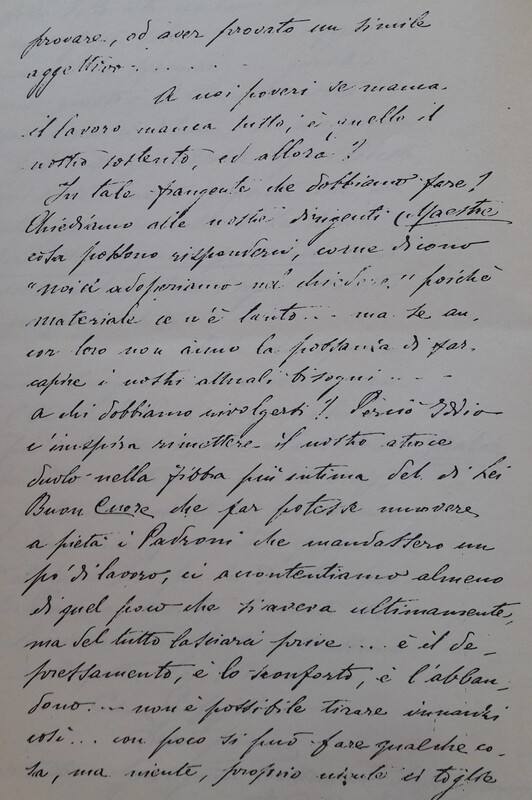 provare, od aver provato un simile
aggettivo . . . . .
A noi poveri se manca
il lavoro manca tutto, è quello il
nostro sostento, ed allora?
In tale frangente che dobbiamo fare?
Chiediamo alle nostre dirigenti (Maestre
cosa possono risponderci, come dicono
"noi ci adoperiamo nel chiedere" poichè
materiale ce n'è tanto... ma se an-
cor loro non ànno la possanza di far
capire i nostri attuali bisogni....
a chi dobbiamo rivolgersi? Perciò Iddio
c'inspira rimettere il nostro atroce
duolo nella fibra più intima del di Lei
Buon Cuore che far potesse muovere
a pietà i Padroni che mandassero un
po' di lavoro, ci accontentiamo almeno
di quel poco che si aveva ultimamente,
ma del tutto lasciarci prive... è il de-
pressamento, è lo sconforto, è l'abban-
dono... non è possibile tirare innanzi
così... con poco si può fare qualche co-
sa, ma niente, proprio niente ci toglie